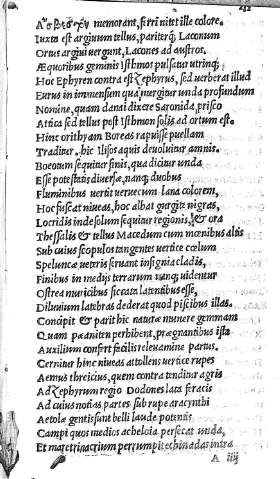 memorant, ferri nitet ille colore.
Iuxta est argium tellus, pariterq; Laconum
Ortus argiui uergunt, Lacones ad austros.
Æquoribus geminis Isthmos pulsatur utrinq;
Hoc Ephyren contra est Zephyrus, sed uerberat illud
Eurus in immensum qua mergitur unda profundum
Nomine, quam danai dixere Saronida, prisco
Attica sed tellus post Isthmon solis ad ortum est.
Hinc orithyam Boreas rapuisse puellam
Traditur, hic Ilisos aquis deuoluitur amnis.
Boeotum sequitur finis, qua dicitur unda
Esse potestatis diuersæ, nanq; duobus
Fluminibus uertit ueruecum lana colorem,
Hoc fuscat niueas, hoc albat gurgite nigras,
Locridis inde solum sequitur regionis, & ora
Thessalis et tellus Macedum cum mœnibus altis
Sub cuius scopulos tangentes uertice cœlum
Speluncæ ueteris seruant insignia cladis,
Finibus in medijs terrarum nanq; uidentur
Ostrea muricibus siccata latentibus esse,
Diluuium latebras dederat quod piscibus illas.
Concipit & parit hic naturæ munere gemmam
Quam pæaniten perhibent, prægnantibus ista
Auxilium confert facilis releuamine partus.
Cernitur hinc niueas attollens uertice rupes
Aemus threicius, quem contra tenditur agris
Ad Zephyrum regio Dodones lata feracis
Ad cuius notias partes sub rupe aracynthi
Aetolæ gentis sunt belli laude potentis
Campi quos medios acheloia persecat unda,
Et mare tyrrhenum perrumpit echinadas intra
A iiij